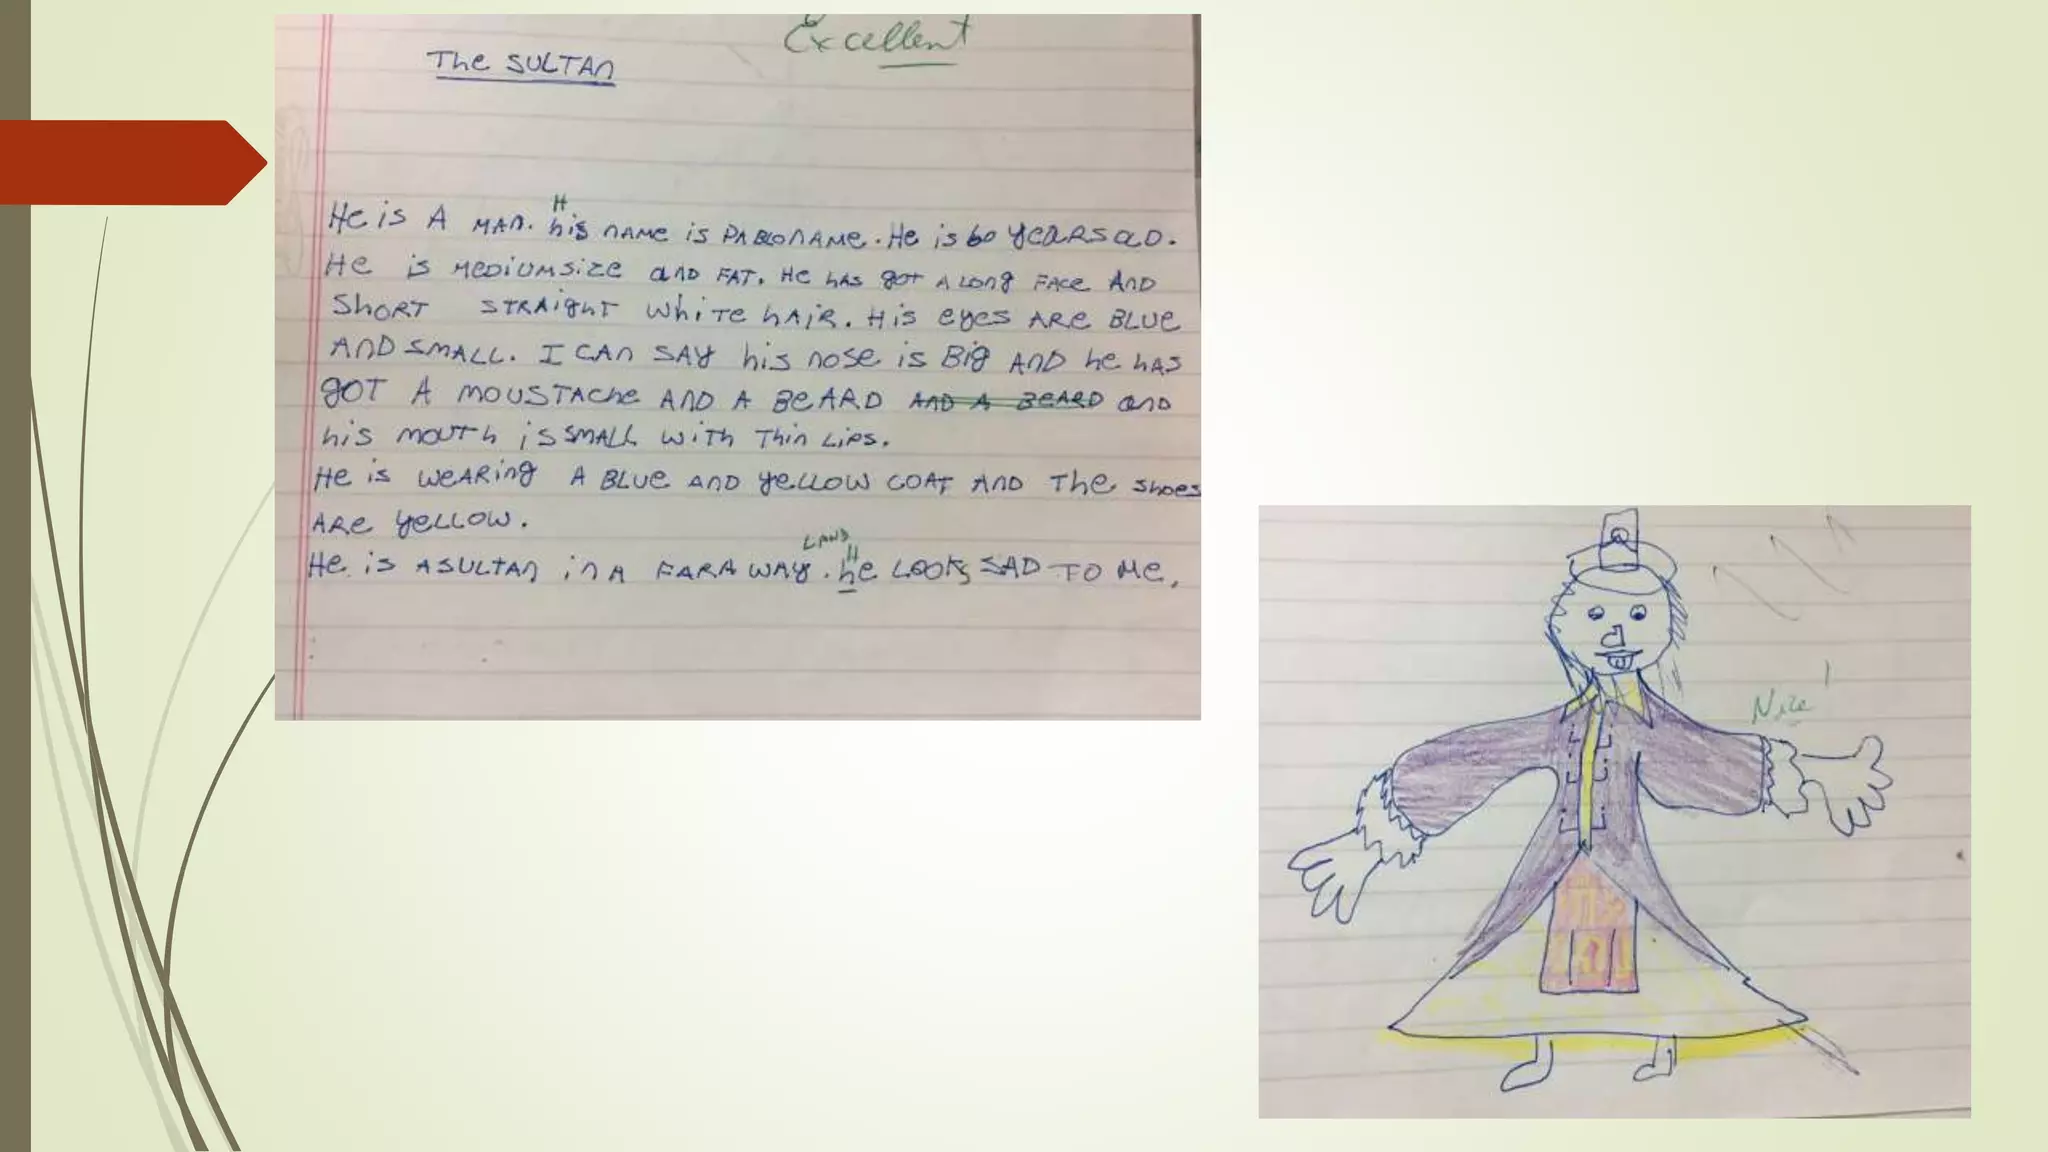 Excellent
The SULTAN
H
He is A MAN. his NAME is PABLONAME. He is 60 YEARS OLD.
He is MEDIUMSIZE AND FAT. He HAS got A LONG FACE AND
SHORT STRAIGHT WHITE HAIR. His eyes ARE BLUE
AND SMALL. I CAN SAY his nose is Big AND he HAS
GOT A MOUSTACHE AND A BEARD AND A BEARD AND
his MOUTH is SMALL WITH Thin Lips.
He is WEARING A BLUE AND YELLOW COAT AND The SHOES
ARE YELLOW.
LAND
H
He is A SULTAN in A FARAWAY. he LOOKS SAD TO ME.
Nice